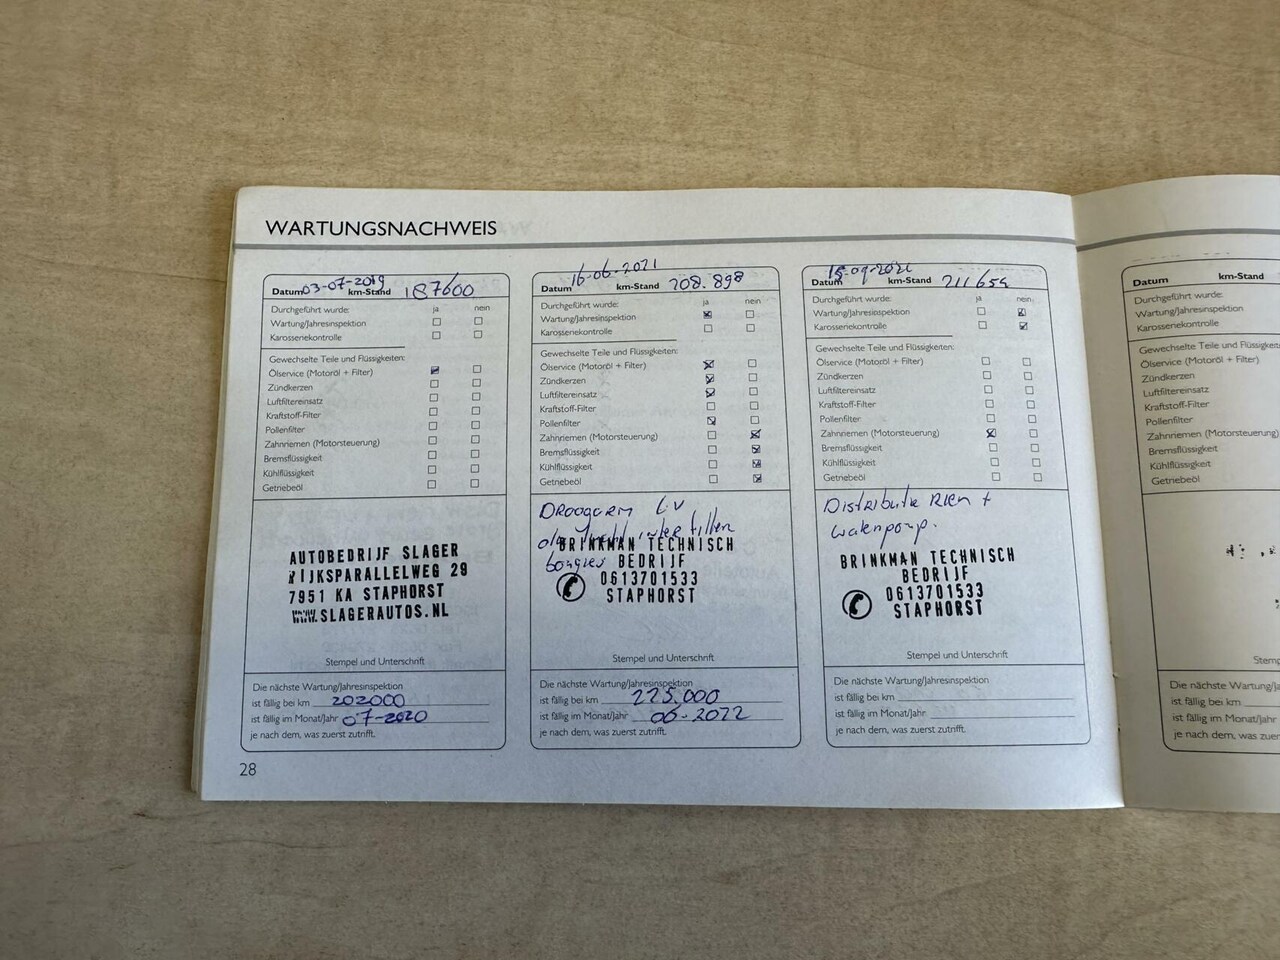 WARTUNGSNACHWEIS
Datum 03-07-2019 km-Stand 187600
Durchgeführt wurde: ja nein
Wartung/Jahresinspektion
Karosseriekontrolle
Gewechselte Teile und Flüssigkeiten:
Ölservice (Motoröl + Filter)
Zündkerzen
Luftfiltereinsatz
Kraftstoff-Filter
Pollenfilter
Zahnriemen (Motorsteuerung)
Bremsflüssigkeit
Kühlflüssigkeit
Getriebeöl
AUTOBEDRIJF SLAGER
RIJKSPARALLELWEG 29
7951 KA STAPHORST
WWW.SLAGERAUTOS.NL
Stempel und Unterschrift
Die nächste Wartung/Jahresinspektion
ist fällig bei km 202000
ist fällig im Monat/Jahr 07-2020
je nach dem, was zuerst zutrifft.
28
Datum 16-06-2021 km-Stand 208.898
Durchgeführt wurde: ja nein
Wartung/Jahresinspektion
Karosseriekontrolle
Gewechselte Teile und Flüssigkeiten:
Ölservice (Motoröl + Filter)
Zündkerzen
Luftfiltereinsatz
Kraftstoff-Filter
Pollenfilter
Zahnriemen (Motorsteuerung)
Bremsflüssigkeit
Kühlflüssigkeit
Getriebeöl
DRaagarm L.V
filter
bougies
BRINKMAN TECHNISCH
BEDRIJF
0613701533
STAPHORST
Stempel und Unterschrift
Die nächste Wartung/Jahresinspektion
ist fällig bei km 225.000
ist fällig im Monat/Jahr 06-2022
je nach dem, was zuerst zutrifft.
Datum km-Stand 211654
Durchgeführt wurde: ja nein
Wartung/Jahresinspektion
Karosseriekontrolle
Gewechselte Teile und Flüssigkeiten:
Ölservice (Motoröl + Filter)
Zündkerzen
Luftfiltereinsatz
Kraftstoff-Filter
Pollenfilter
Zahnriemen (Motorsteuerung)
Bremsflüssigkeit
Kühlflüssigkeit
Getriebeöl
Distributie Riem +
waterpomp.
BRINKMAN TECHNISCH
BEDRIJF
0613701533
STAPHORST
Stempel und Unterschrift
Die nächste Wartung/Jahresinspektion
ist fällig bei km
ist fällig im Monat/Jahr
je nach dem, was zuerst zutrifft.
Datum km-Stand
Durchgeführt wurde:
Wartung/Jahresinspektion
Karosseriekontrolle
Gewechselte Teile und Flüssigkeiten
Ölservice (Motoröl + Filter)
Zündkerzen
Luftfiltereinsatz
Kraftstoff-Filter
Pollenfilter
Zahnriemen (Motorsteuerung)
Bremsflüssigkeit
Kühlflüssigkeit
Getriebeöl
Stemp
Die nächste Wartung/Ja
ist fällig bei km
ist fällig im Monat/Jahr
je nach dem, was zuerst